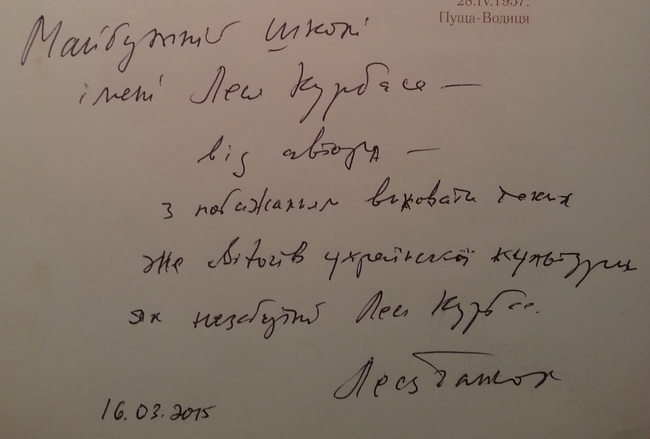 28.IV.1957.
Пуща-Водиця
Майбутній школі
імені Леся Курбаса —
від автора —
з побажанням виховати таких
же витоків української культури
як незабутній Лесь Курбас.
Лесь Танюк
16.03.2015